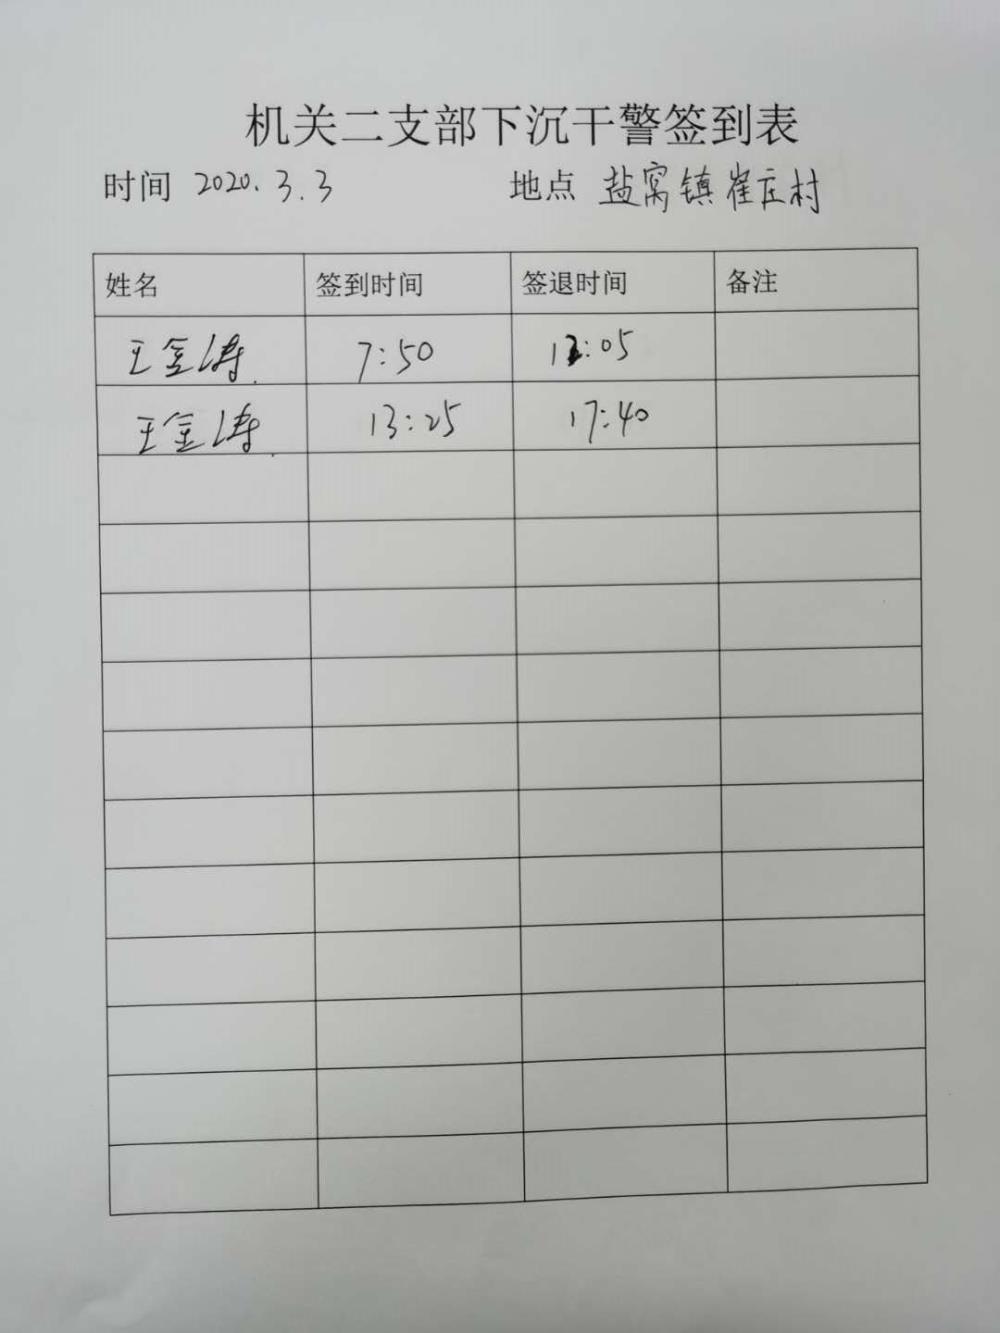 机关二支部下沉干警签到表
时间 2020.3.3 地点 盐窝镇崔庄村
姓名 签到时间 签退时间 备注
王金涛 7:50 12:05
王金涛 13:25 17:40